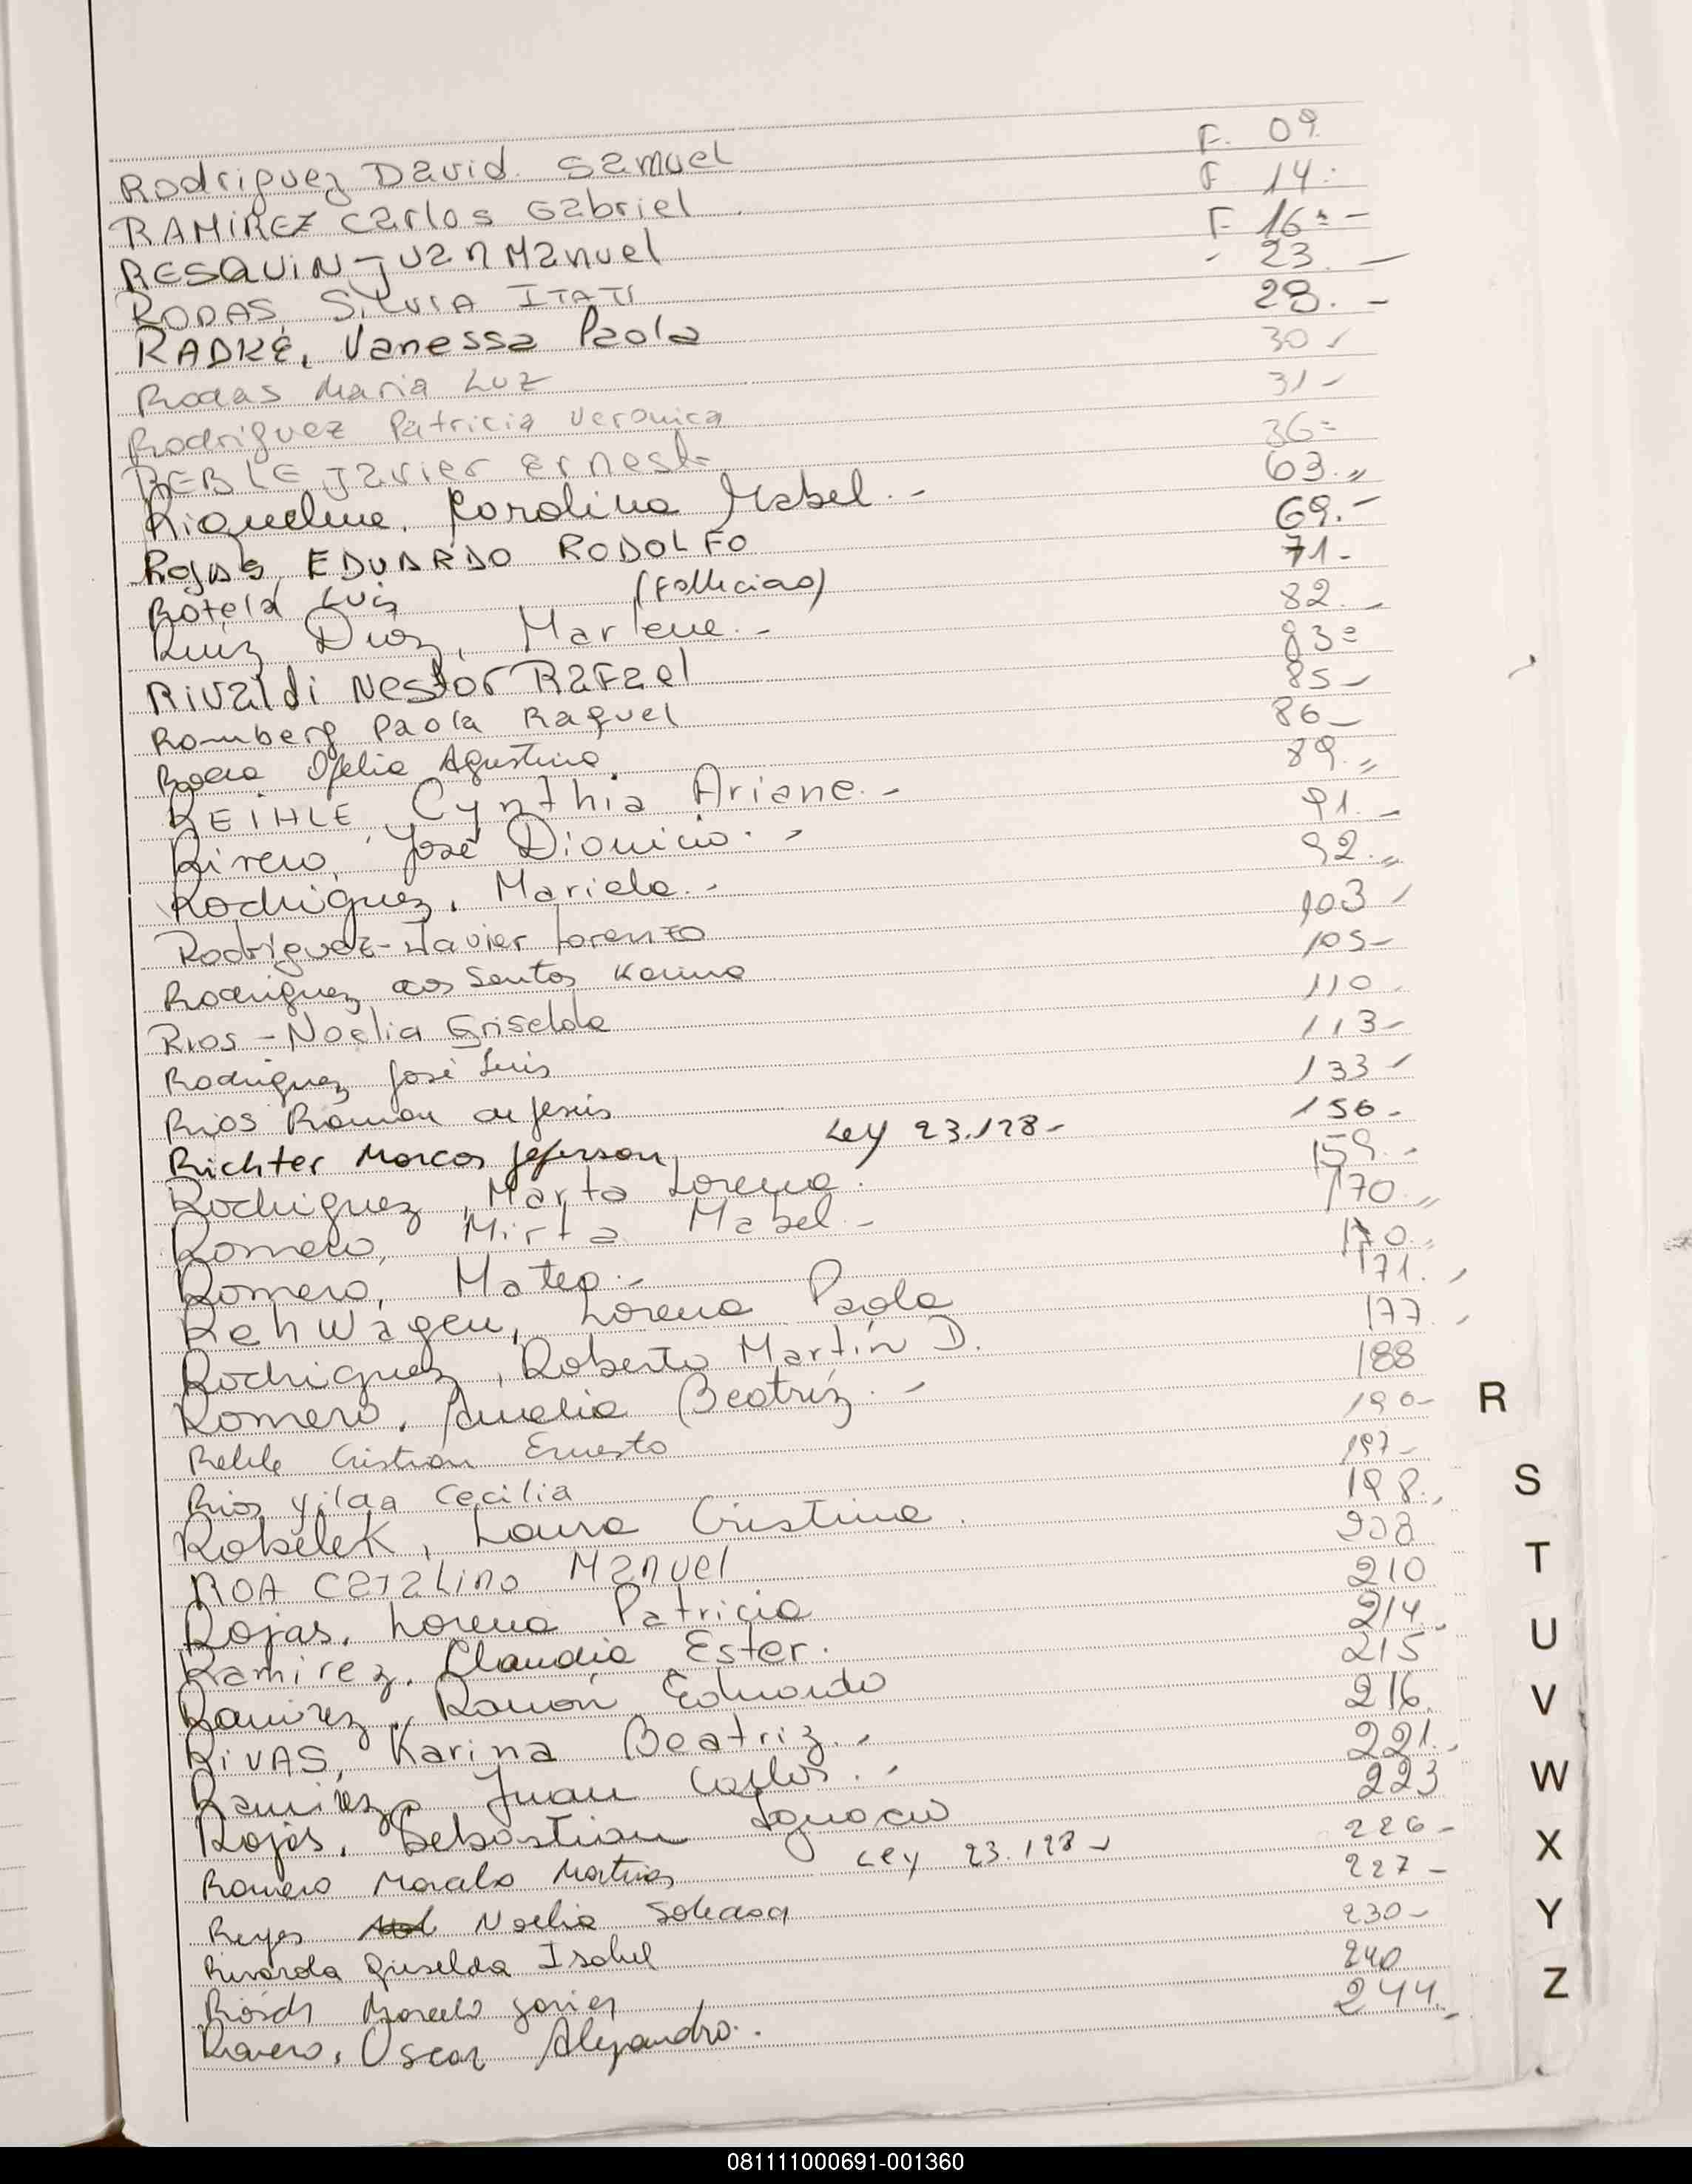 Rodriguez David Samuel F. 09.
RAMIREZ Carlos Gabriel F 14.
RESQUIN Juan Manuel F 16.-
RODAS, SILVIA ITATI 23.-
RADKE, Vanessa Paola 28.-
Rodas Maria Luz 30-
Rodriguez Patricia Veronica 31-
REBLE Javier Ernesto 36-
Riquelme, Carolina Mabel.- 63.,,
Rojas, EDUARDO RODOLFO 69.-
Rotela Luis (Fallecido) 71-
Ruiz Diaz, Marlene.- 82.-
Rivaldi Nestor Rafael 83=
Romberg Paola Raquel 85-
Ofelia Agustina 86-
REIHLE, Cynthia Ariane.- 89.,,
Rivero, José Dionicio.- 91.-
Rodriguez, Mariela.- 92.,,
Rodriguez-Javier Lorenzo 103-
Rodriguez dos Santos Karina 105-
Rios - Noelia Griselda 110.
Rodriguez José Luis 113-
Rios Ramon de Jesús 133-
Richter Marcos Jeferson Ley 23.128- 156-
Rodriguez, Marta Lorena. 159.-
Romero, Mirta Mabel.- 170.,,
Romero, Mateo.- 170.,,
Rehwagen, Lorena Paola 171.,
Rodriguez, Roberto Martín D. 177.,
Romero, Amelia Beatríz.- 188
Cristian Ernesto 190-
Rios Hilda Cecilia 197-
Robelek, Laura Cristina. 198.,
ROA Catalino Manuel 208
Rojas, Lorena Patricia 210
Ramirez, Claudia Ester. 214.
Ramirez, Ramón Eduardo 215
RIVAS, Karina Beatriz.- 216.
Ramírez, Juan Carlos.- 221.,
Rojas, Sebastian Ignacio 223
Romero Marcelo Matias Ley 23.128- 226-
Reyes Noelia Soledad 227-
Rivarola Griselda Isabel 230-
Rösch Marcelo Javier 240
Rivero, Oscar Alejandro.. 244.-
R
S
T
U
V
W
X
Y
Z
081111000691-001360